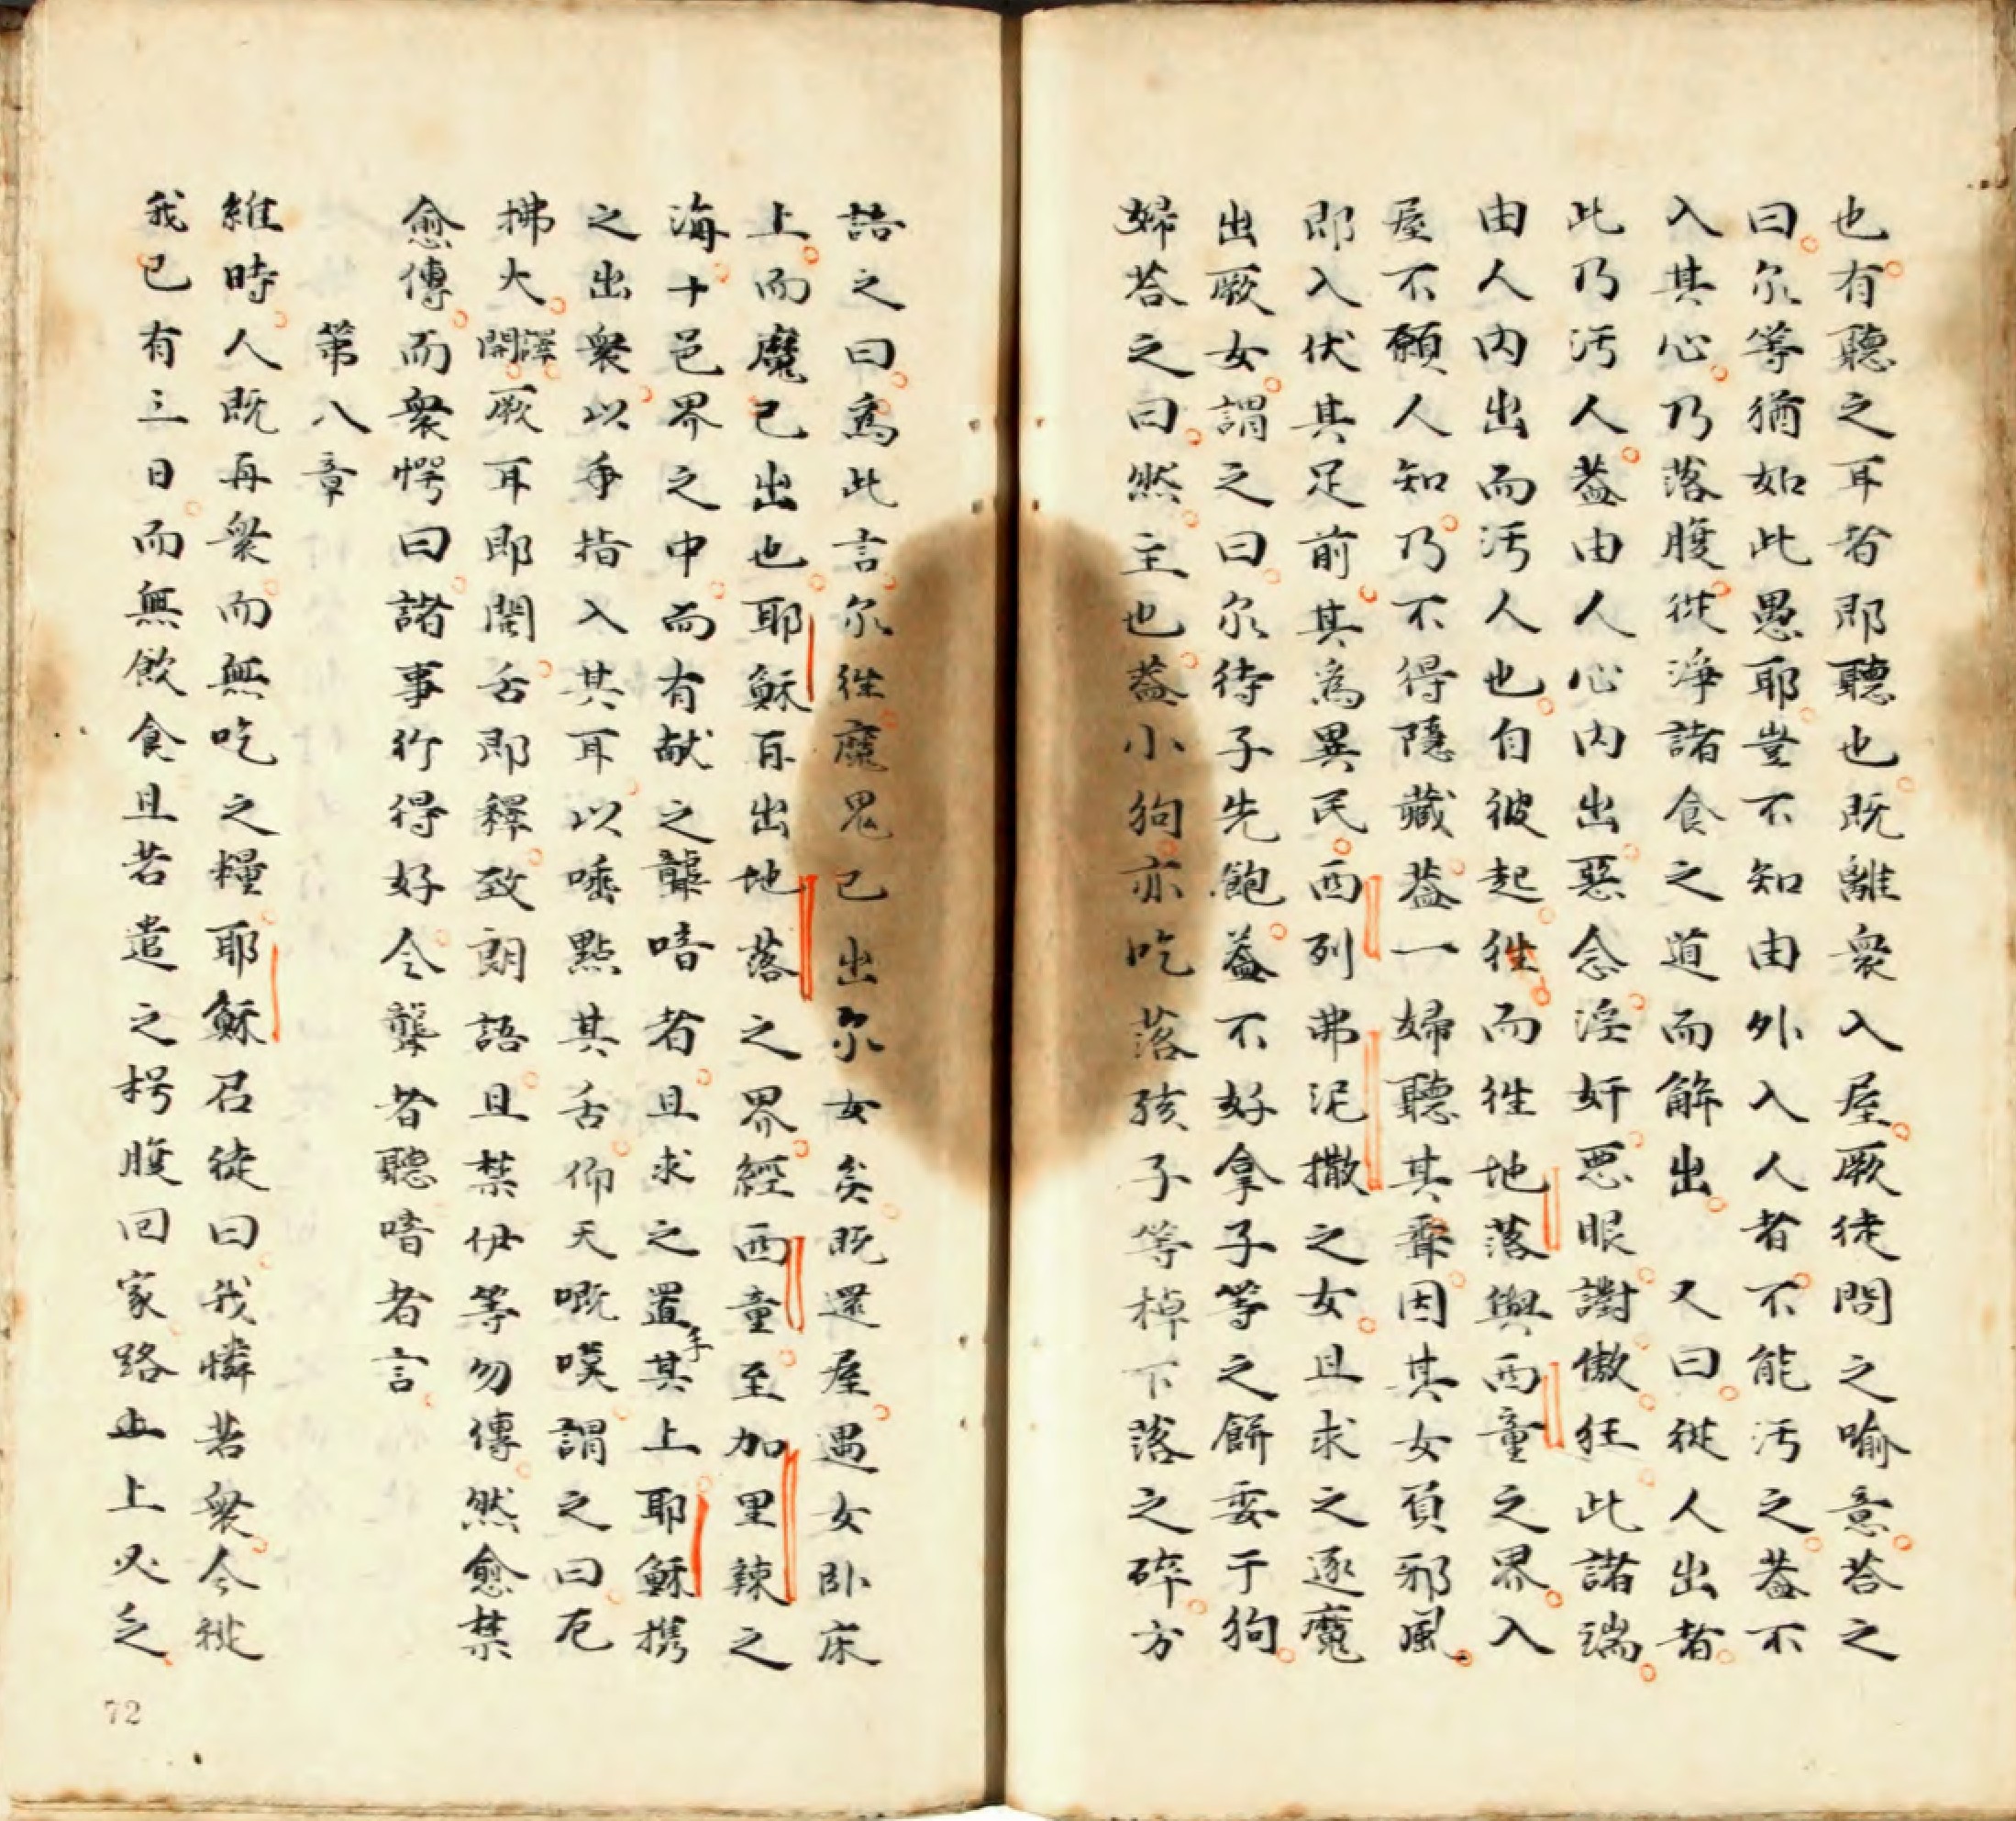 也有聽之耳者即聽也既離衆入屋厥徒問之喻意荅之
曰尔等猶如此愚耶豈不知由外入人者不能污之葢不
入其心乃落腹從淨諸食之道而解出又曰從人出者
此乃污人葢由人心內出惡念淫奸惡眼讟傲狂此諸端
由人內出而污人也自彼起徃而徃地落與西童之界入
屋不願人知乃不得隱藏葢一婦聽其聲因其女負邪風
即入伏其足前其為異民西列弗泥撒之女且求之逐魔
出厥女謂之曰尔待子先飽葢不好拿子等之餅委于狗
婦荅之曰然主也葢小狗亦吃落孩子等棹下落之碎方
語之曰為此言尔徃魔鬼已出尔女矣既還屋遇女臥床
上而魔已出也耶穌百出地落之界經西童至加里辣之
海十邑界之中而有献之聾喑者且求之置手其上耶穌攜
之出衆以手指入其耳以唾點其舌仰天嘅嘆謂之曰厄
拂大譯開厥耳即闓舌即釋致朗語且禁伊等勿傳然愈禁
愈傳而衆愕曰諸事行得好令聾者聽喑者言
第八章
維時人既再衆而無吃之糧耶穌召徒曰我憐若衆今從
我已有三日而無飲食且若遣之枵腹回家路上必乏
72